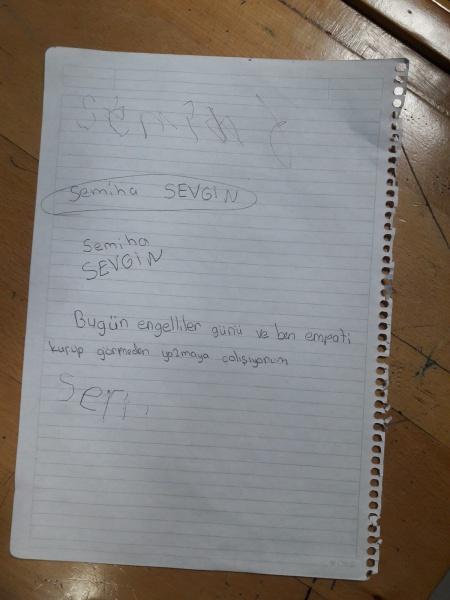 Semiha
Semiha SEVGİN
Semiha
SEVGİN
Bugün engelliler günü ve ben empati
kurup görmeden yazmaya çalışıyorum
Sem